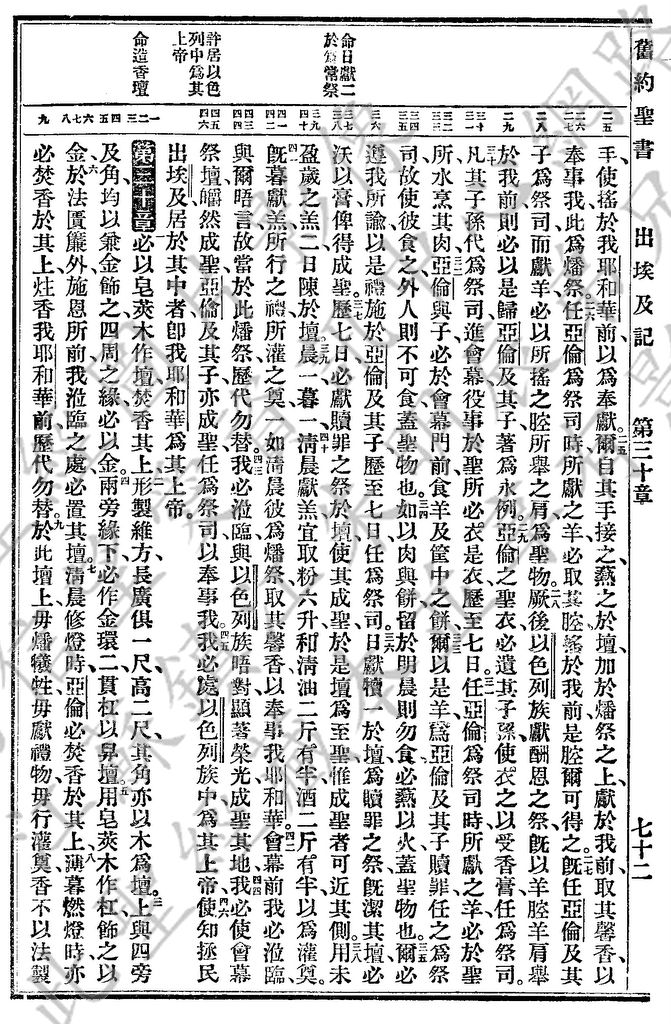 舊約聖書 出埃及記 第三十章 七十二
手使搖於我耶和華前以爲奉獻爾自其手接之爇之於壇加於燔祭之上獻於我前取其馨香以
奉事我此爲燔祭任亞倫爲祭司時所獻之羊必取其腔搖於我前是腔爾可得之旣任亞倫及其
子爲祭司而獻羊必以所搖之腔所舉之肩爲聖物厥後以色列族獻酬恩之祭旣以羊腔羊肩舉
於我前則必以是歸亞倫及其子著爲永例亞倫之聖衣必遺其子孫使衣之以受香膏任爲祭司
凡其子孫代爲祭司進會幕役事於聖所必衣是衣歷至七日任亞倫爲祭司時所獻之羊必於聖
所水烹其肉亞倫與子必於會幕門前食羊及筐中之餅爾以是羊爲亞倫及其子贖罪任之爲祭
司故使彼食之外人則不可食蓋聖物也如以肉與餅留於明晨則勿食必爇以火蓋聖物也爾必
遵我所諭以是禮施於亞倫及其子歷至七日任爲祭司日獻犢一於壇爲贖罪之祭旣潔其壇必
沃以膏俾得成聖歷七日必獻贖罪之祭於壇使其成聖於是壇爲至聖惟成聖者可近其側用未
盈歲之羔二日陳於壇晨一暮一淸晨獻羔宜取粉六升和淸油二斤有半酒二斤有半以爲灌奠
旣暮獻羔所行之禮所灌之奠一如淸晨彼爲燔祭取其馨香以奉事我耶和華會幕前我必涖臨
與爾晤言故當於此燔祭歷代勿替我必涖臨與以色列族晤對顯著榮光成聖其地我必使會幕
祭壇皭然成聖亞倫及其子亦成聖任爲祭司以奉事我我必處以色列族中爲其上帝使知拯民
出埃及居於其中者卽我耶和華爲其上帝
第三十章必以皂莢木作壇焚香其上形製維方長廣俱一尺高二尺其角亦以木爲壇上與四旁
及角均以兼金飾之四周之緣必以金兩旁緣下必作金環二貫杠以舁壇用皂莢木作杠飾之以
金於法匱簾外施恩所前我涖臨之處必置其壇淸晨修燈時亞倫必焚香於其上薄暮燃燈時亦
必焚香於其上炷香我耶和華前歷代勿替於此壇上毋燔犧牲毋獻禮物毋行灌奠香不以法製
命日獻二
於𤇍常祭
許居以色
列中爲其
上帝
命造香壇